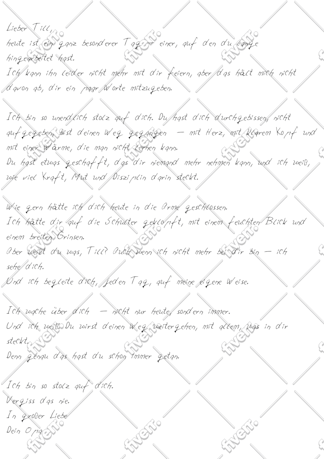 Lieber Till,
heute ist ein ganz besonderer Tag – einer, auf den du lange
hingearbeitet hast.
Ich kann ihn leider nicht mehr mit dir feiern, aber das hält mich nicht
davon ab, dir ein paar Worte mitzugeben.
Ich bin so unendlich stolz auf dich. Du hast dich durchgebissen, nicht
aufgegeben, bist deinen Weg gegangen – mit Herz, mit klarem Kopf und
mit einer Wärme, die man nicht lernen kann.
Du hast etwas geschafft, das dir niemand mehr nehmen kann, und ich weiß,
wie viel Kraft, Mut und Disziplin darin steckt.
Wie gern hätte ich dich heute in die Arme geschlossen.
Ich hätte dir auf die Schulter geklopft, mit einem feuchten Blick und
einem breiten Grinsen.
Aber weißt du was, Till? Auch wenn ich nicht mehr bei dir bin – ich
sehe dich.
Und ich begleite dich, jeden Tag, auf meine eigene Weise.
Ich wache über dich – nicht nur heute, sondern immer.
Und ich weiß: Du wirst deinen Weg weitergehen, mit allem, was in dir
steckt.
Denn genau das hast du schon immer getan.
Ich bin so stolz auf dich.
Vergiss das nie.
In großer Liebe
Dein Opa
fiverr.